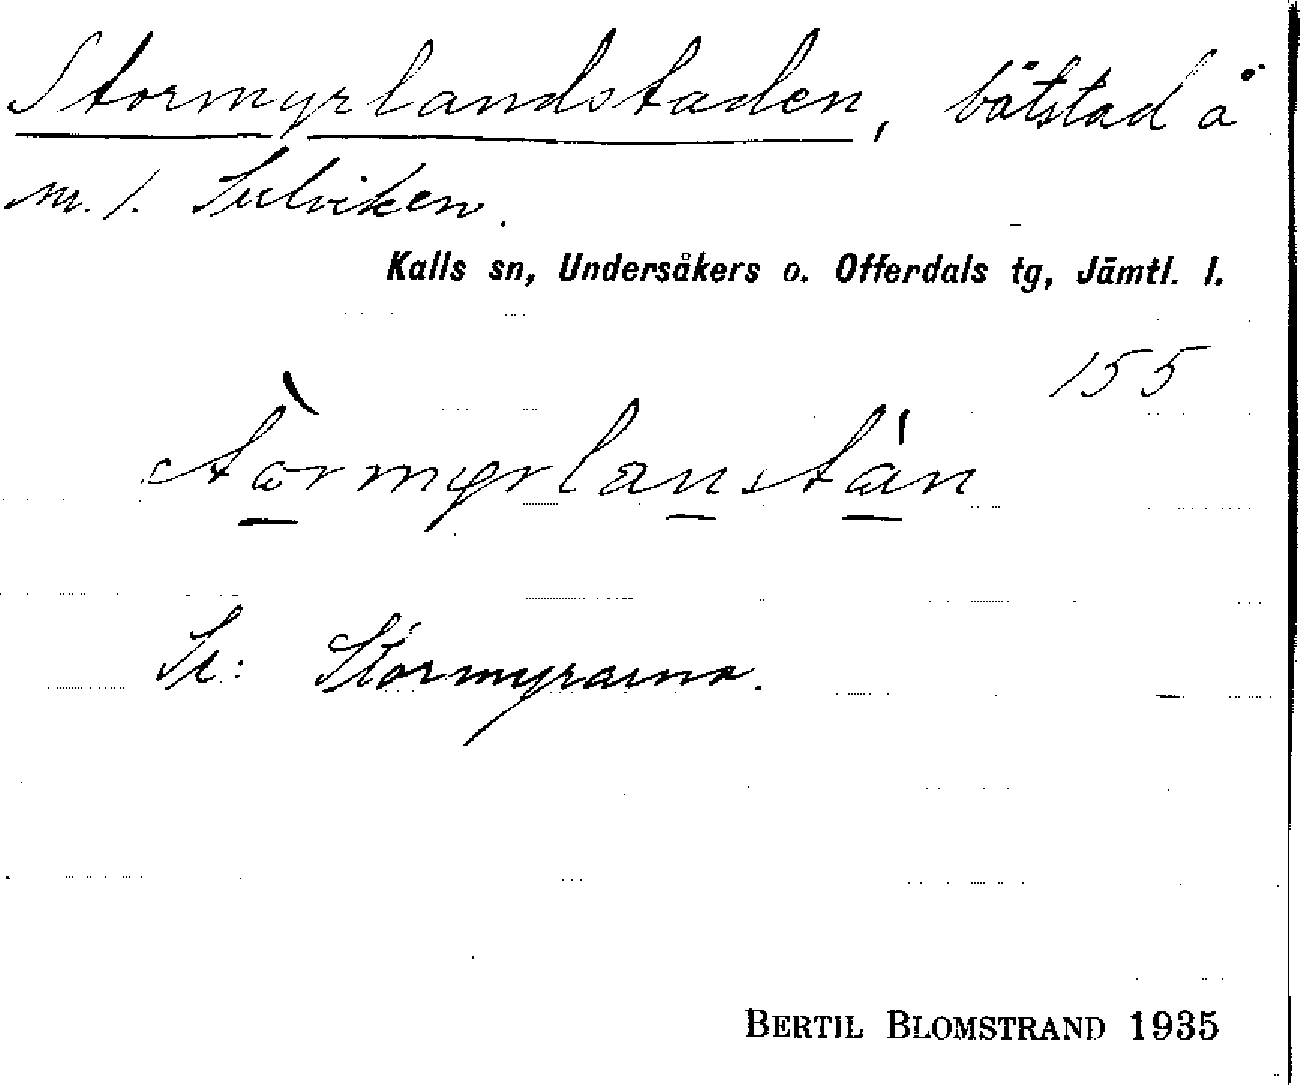 Stormyrlandstaden, båtstad å
m. 1. Sulviken.
Kalls sn, Undersåkers o. Offerdals tg, Jämtl. l.
155
stòrmyrlanstán
Se: Stormyrarna.
BERTIL BLOMSTRAND 1935